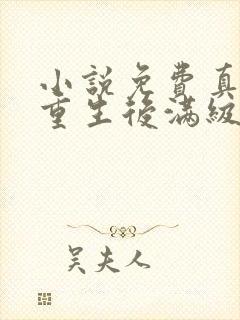 小説免費真
重生後滿級
吳夫人